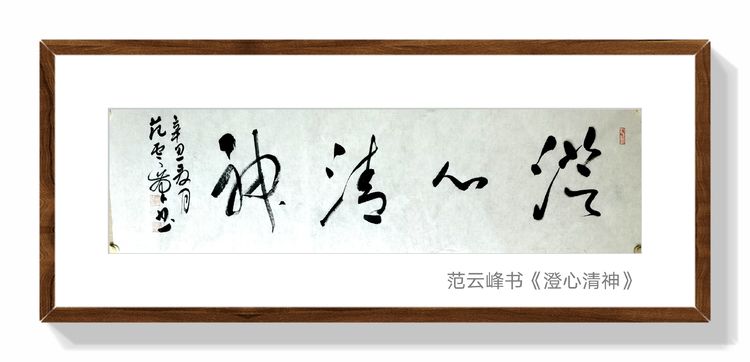 澄心清神
辛丑夏月
范云峰书
范云峰书《澄心清神》